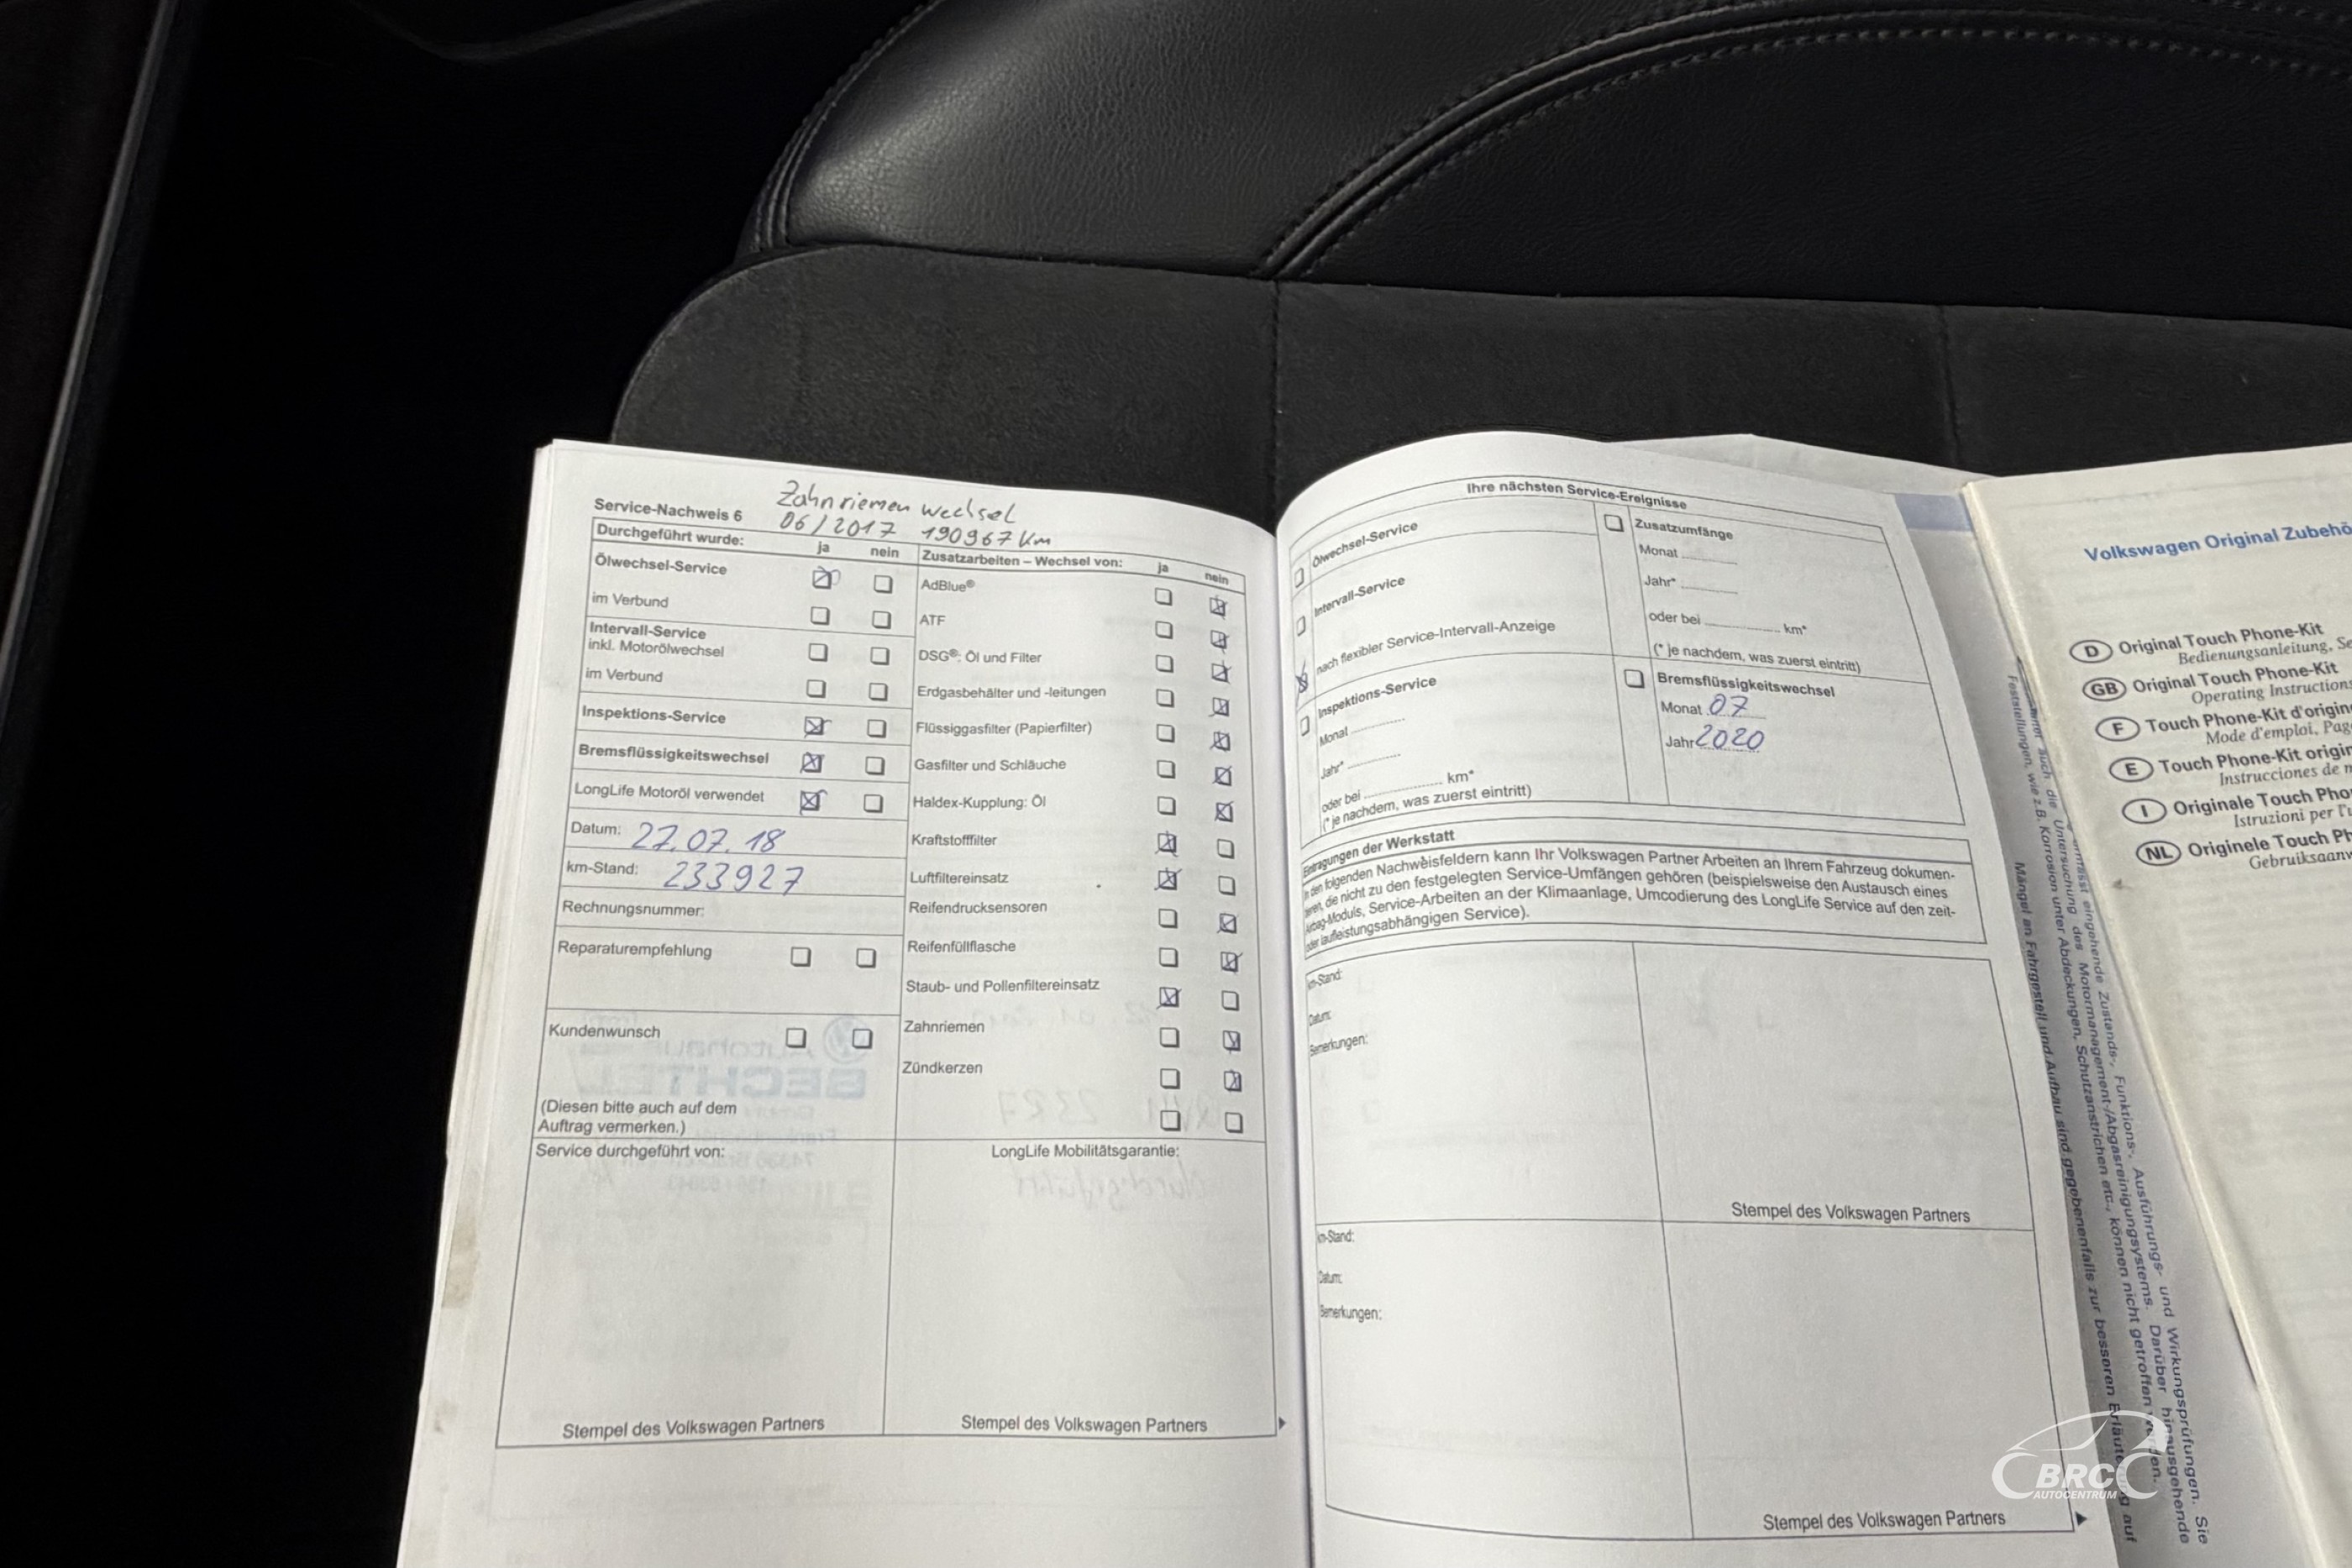 Zahnriemen wechsel
Service-Nachweis 6
06/2017 190967 km
Durchgeführt wurde:
ja nein
Ölwechsel-Service
im Verbund
Intervall-Service
inkl. Motorölwechsel
im Verbund
Inspektions-Service
Bremsflüssigkeitswechsel
LongLife Motoröl verwendet
Datum: 27.07.18
km-Stand: 233927
Rechnungsnummer:
Reparaturempfehlung
Kundenwunsch
(Diesen bitte auch auf dem
Auftrag vermerken.)
Zusatzarbeiten – Wechsel von:
ja nein
AdBlue®
ATF
DSG®: Öl und Filter
Erdgasbehälter und -leitungen
Flüssiggasfilter (Papierfilter)
Gasfilter und Schläuche
Haldex-Kupplung: Öl
Kraftstofffilter
Luftfiltereinsatz
Reifendrucksensoren
Reifenfüllflasche
Staub- und Pollenfiltereinsatz
Zahnriemen
Zündkerzen
Service durchgeführt von:
LongLife Mobilitätsgarantie:
Stempel des Volkswagen Partners
Stempel des Volkswagen Partners
Ihre nächsten Service-Ereignisse
Ölwechsel-Service
Intervall-Service
nach flexibler Service-Intervall-Anzeige
Inspektions-Service
Monat
Jahr*
oder bei km*
(* je nachdem, was zuerst eintritt)
Zusatzumfänge
Monat
Jahr*
oder bei km*
(* je nachdem, was zuerst eintritt)
Bremsflüssigkeitswechsel
Monat 07
Jahr 2020
Eintragungen der Werkstatt
In den folgenden Nachweisfeldern kann Ihr Volkswagen Partner Arbeiten an Ihrem Fahrzeug dokumen-
tieren, die nicht zu den festgelegten Service-Umfängen gehören (beispielsweise den Austausch eines
Airbag-Moduls, Service-Arbeiten an der Klimaanlage, Umcodierung des LongLife Service auf den zeit-
oder laufleistungsabhängigen Service).
km-Stand:
Datum:
Bemerkungen:
Stempel des Volkswagen Partners
km-Stand:
Datum:
Bemerkungen:
Stempel des Volkswagen Partners
eingehende Zustands-, Funktions-, Ausführungs- und Wirkungsprüfungen. Sie
auch die Untersuchung des Motormanagement-/Abgasreinigungssystems. Darüber hinausgehende
Feststellungen, wie z.B. Korrosion unter Abdeckungen, Schutzanstrichen etc., können nicht getroffen werden.
Mängel an Fahrgestell und Aufbau sind gegebenenfalls zur besseren Erläuterung auf
Volkswagen Original Zubehö
D Original Touch Phone-Kit
Bedienungsanleitung, Se
GB Original Touch Phone-Kit
Operating Instructions
F Touch Phone-Kit d'origin
Mode d'emploi, Pag
E Touch Phone-Kit origin
Instrucciones de m
I Originale Touch Pho
Istruzioni per l'u
NL Originele Touch Ph
Gebruiksaanw
BRC
AUTOCENTRUM